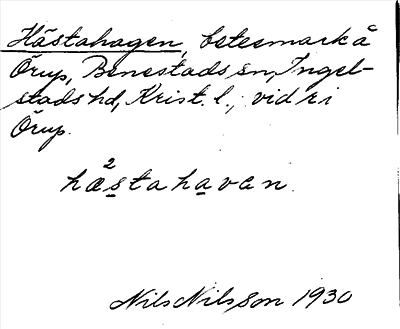 Hästahagen, betesmark å
Örup, Benestads sn, Ingel-
stads hd, Krist. l.; vid r i
Örup.
2
hästahavan.
Nils Nilsson 1930